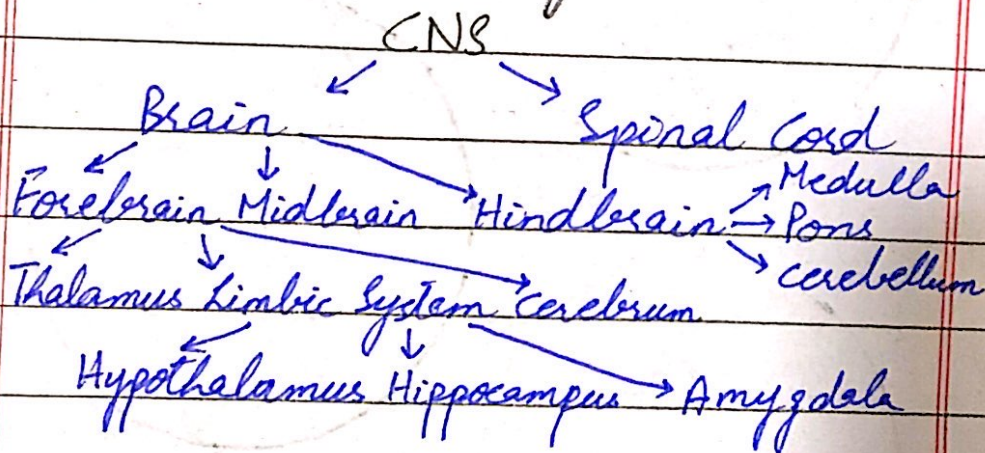 CNS
Brain Spinal Cord
Medulla
Forebrain Midbrain Hindbrain Pons
cerebellum
Thalamus Limbic System Cerebrum
Hypothalamus Hippocampus Amygdala